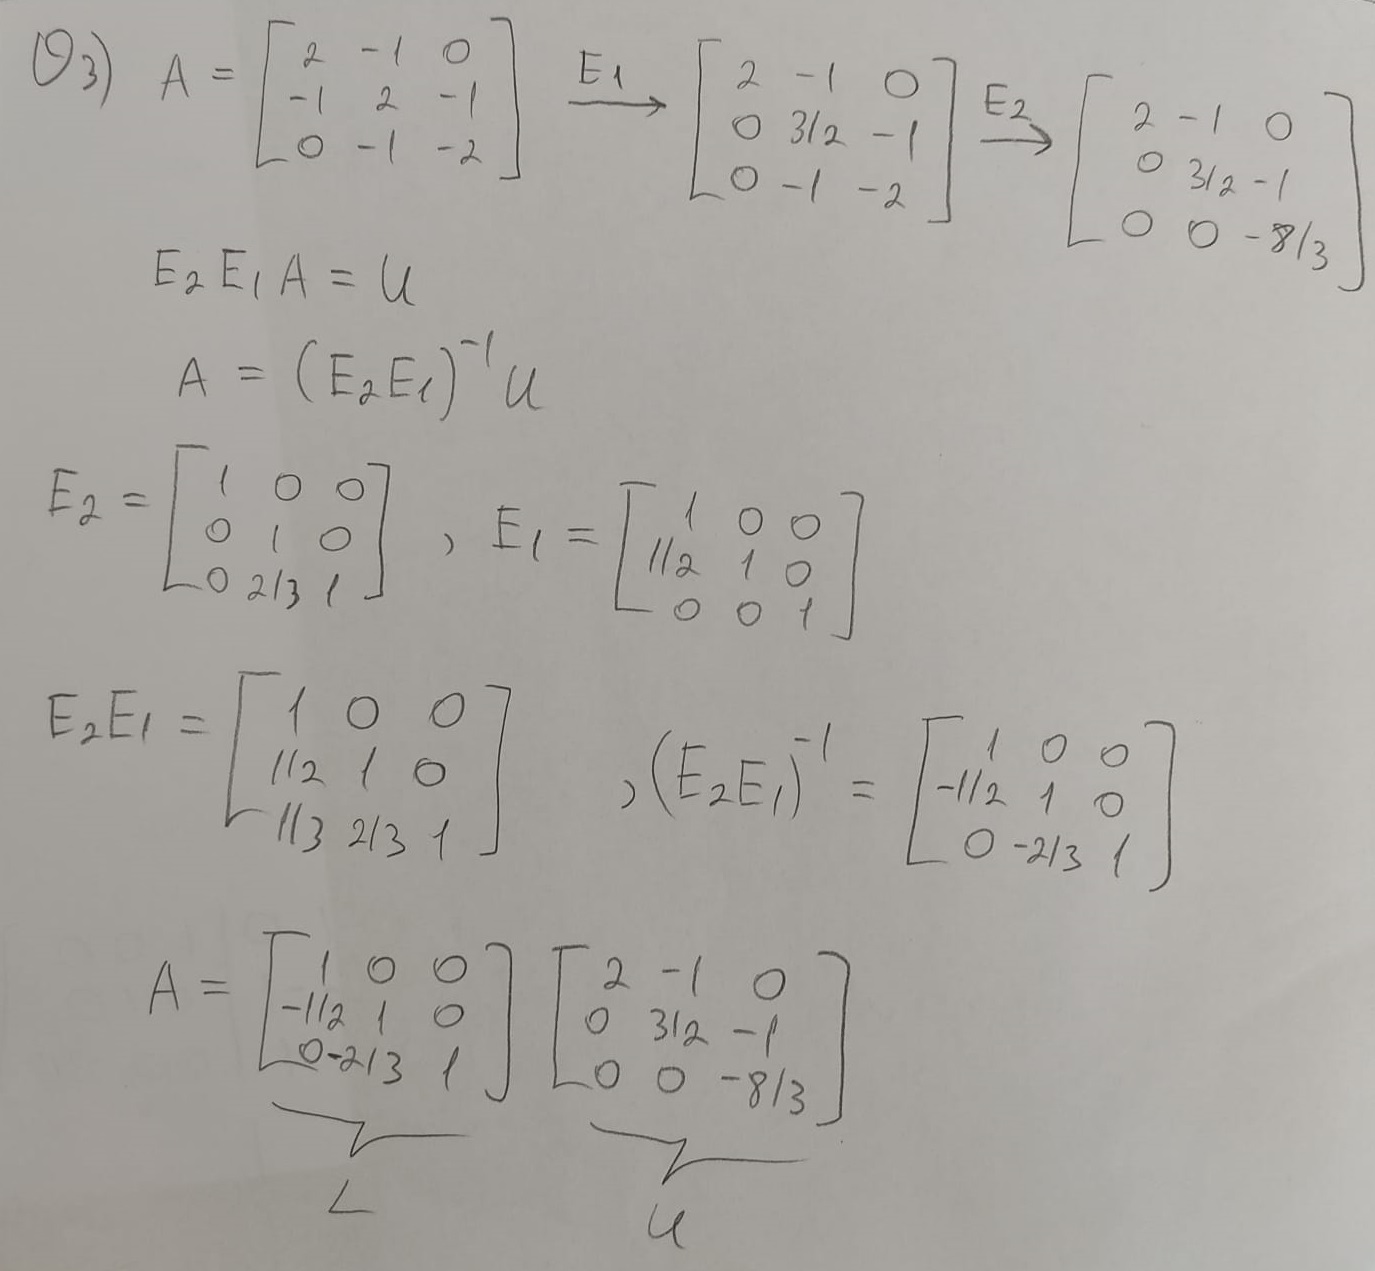 Q3) A = [2 -1 0; -1 2 -1; 0 -1 -2] E1→ [2 -1 0; 0 3/2 -1; 0 -1 -2] E2→ [2 -1 0; 0 3/2 -1; 0 0 -8/3]
E₂E₁A = U
A = (E₂E₁)⁻¹U
E₂ = [1 0 0; 0 1 0; 0 2/3 1], E₁ = [1 0 0; 1/2 1 0; 0 0 1]
E₂E₁ = [1 0 0; 1/2 1 0; 1/3 2/3 1], (E₂E₁)⁻¹ = [1 0 0; -1/2 1 0; 0 -2/3 1]
A = [1 0 0; -1/2 1 0; 0 -2/3 1] [2 -1 0; 0 3/2 -1; 0 0 -8/3]
L U